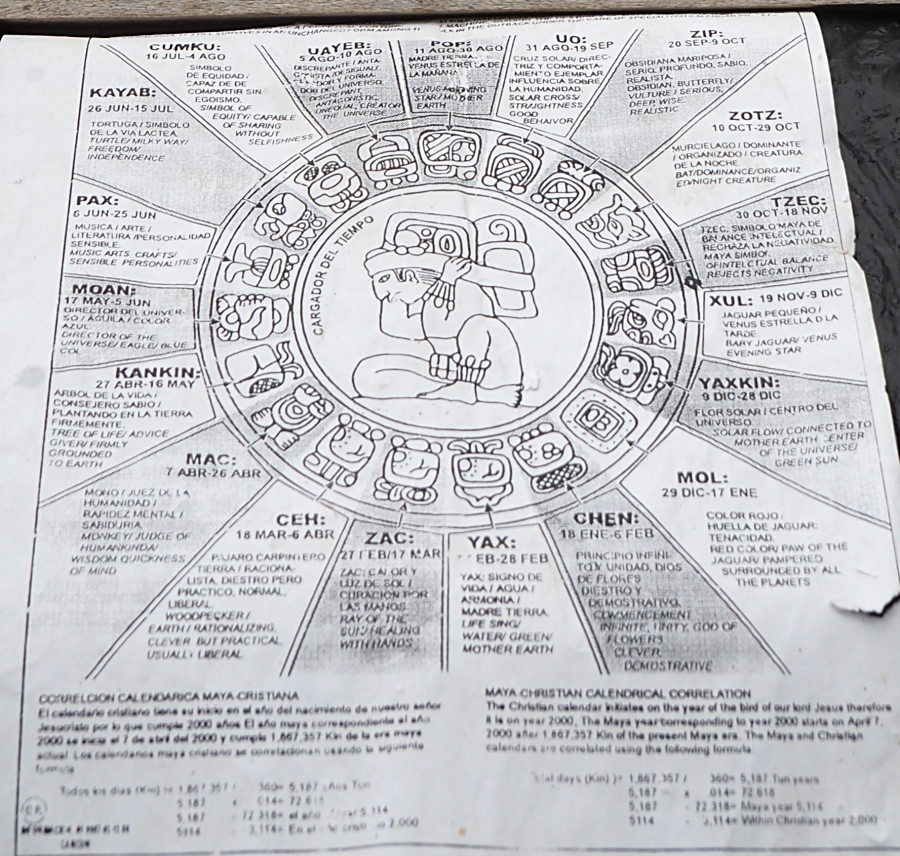 CUMKU:
16 JUL-4 AGO
SIMBOLO
DE EQUIDAD /
CAPAZ DE DE
COMPARTIR SIN
EGOISMO.
SIMBOL OF
EQUITY/ CAPABLE
OF SHARING
WITHOUT
SELFISHNESS
UAYEB:
5 AGO-10 AGO
DISCREPANTE / ANTA
DOR DEL UNIVERSO.
DISCREPANT,
ANTAGONISTIC,
CREATOR OF
THE UNIVERSE
POP:
11 AGO-30 AGO
MADRE TIERRA-
VENUS ESTRELLA DE
LA MAÑANA
VENUS-MORNING
STAR/ MOTHER
EARTH
UO:
31 AGO-19 SEP
CRUZ SOLAR/ DIREC-
TRIZ Y COMPORTA-
MIENTO EJEMPLAR
INFLUENCIA SOBRE
LA HUMANIDAD.
SOLAR CROSS/
STRUGHTNESS
GOOD
BEHAIVOR
ZIP:
20 SEP-9 OCT
OBSIDIANA MARIPOSA /
SERIO, PROFUNDO, SABIO,
REALISTA.
OBSIDIAN, BUTTERFLY/
VULTURE / SERIOUS,
DEEP, WISE.
REALISTIC
ZOTZ:
10 OCT-29 OCT
MURCIELAGO / DOMINANTE
/ ORGANIZADO / CREATURA
DE LA NOCHE.
BAT/DOMINANCE/ORGANIZ
ED/NIGHT CREATURE
TZEC:
30 OCT-18 NOV
TZEC, SIMBOLO MAYA DE
BALANCE INTELECTUAL /
RECHAZA LA NEGATIVIDAD.
MAYA SIMBOL
OFINTELCTUAL BALANCE
REJECTS NEGATIVITY
XUL: 19 NOV-9 DIC
JAGUAR PEQUEÑO /
VENUS ESTRELLA D LA
TARDE.
BABY JAGUAR/ VENUS
EVENING STAR
YAXKIN:
9 DIC-28 DIC
FLOR SOLAR / CENTRO DEL
UNIVERSO.
SOLAR FLOW/ CONNECTED TO
MOTHER EARTH CENTER
OF THE UNIVERSE/
GREEN SUN
MOL:
29 DIC-17 ENE
COLOR ROJO /
HUELLA DE JAGUAR:
TENACIDAD.
RED COLOR/ PAW OF THE
JAGUAR/ PAMPERED
SURROUNDED BY ALL
THE PLANETS
CHEN:
18 ENE-6 FEB
PRINCIPIO INFINI-
TO Y UNIDAD, DIOS
DE FLORES
DIESTRO Y
DEMOSTRATIVO.
COMMENCEMENT
INFINITE, UNITY, GOD OF
FLOWERS
CLEVER,
DEMOSTRATIVE
YAX:
FEB-28 FEB
YAX: SIGNO DE
VIDA / AGUA /
ARMONIA /
MADRE TIERRA.
LIFE SING/
WATER/ GREEN/
MOTHER EARTH
ZAC:
27 FEB/17 MAR
ZAC: CALOR Y
LUZ DE SOL /
CURACION POR
LAS MANOS.
RAY OF THE
SUN/ HEALING
WITH HANDS
CEH:
18 MAR-6 ABR
PAJARO CARPINTERO
TIERRA / RACIONA-
LISTA, DIESTRO PERO
PRACTICO, NORMAL.
LIBERAL.
WOODPECKER /
EARTH / RATIONALIZING,
CLEVER BUT PRACTICAL,
USUALLY LIBERAL
MAC:
7 ABR-26 ABR
MONO / JUEZ DE LA
HUMANIDAD /
RAPIDEZ MENTAL /
SABIDURIA.
MONKEY/ JUDGE OF
HUMANKIND/
WISDOM QUICKNESS
OF MIND
KANKIN:
27 ABR-16 MAY
ARBOL DE LA VIDA /
CONSEJERO SABIO /
PLANTANDO EN LA TIERRA
FIRMEMENTE.
TREE OF LIFE/ ADVICE
GIVER/ FIRMLY
GROUNDED
TO EARTH
MOAN:
17 MAY-5 JUN
DIRECTOR DEL UNIVER-
SO / AGUILA / COLOR
AZUL.
DIRECTOR OF THE
UNIVERSE/ EAGLE/ BLUE
COL
PAX:
6 JUN-25 JUN
MUSICA / ARTE /
LITERATURA /PERSONALIDAD
SENSIBLE.
MUSIC ARTS CRAFTS/
SENSIBLE PERSONALITIES
KAYAB:
26 JUN-15 JUL
TORTUGA / SIMBOLO
DE LA VIA LACTEA.
TURTLE/ MILKY WAY/
FREEDOM/
INDEPENDENCE
CARGADOR DEL TIEMPO
CORRELCION CALENDARICA MAYA-CRISTIANA
El calendario cristiano tiene su inicio en el año del nacimiento de nuestro señor
Jesucristo por lo que cumple 2000 años El año maya correspondiente al año
2000 se inicia el 7 de abril del 2000 y cumple 1,867,357 Kin de la era maya
actual Los calendarios maya cristiano se correlacionan usando la siguiente
formula
Todos los dias (Kin) = 1,867,357 / 360= 5,187 años Tun
5,187 x .014= 72.618
5,187 - 72.318= el año 5,114
5114 - 3,114= 2,000
MAYA-CHRISTIAN CALENDRICAL CORRELATION
The Christian calendar initiates on the year of the bird of our lord Jesus therefore
it is on year 2000, The Maya year corresponding to year 2000 starts on April 7,
2000 after 1,867,357 Kin of the present Maya era. The Maya and Christian
calendars are correlated using the following formula
days (Kin) = 1,867,357 / 360= 5,187 Tun years
5,187 x .014= 72.618
5,187 - 72.318= Maya year 5,114
5114 - 3,114= Within Christian year 2,000